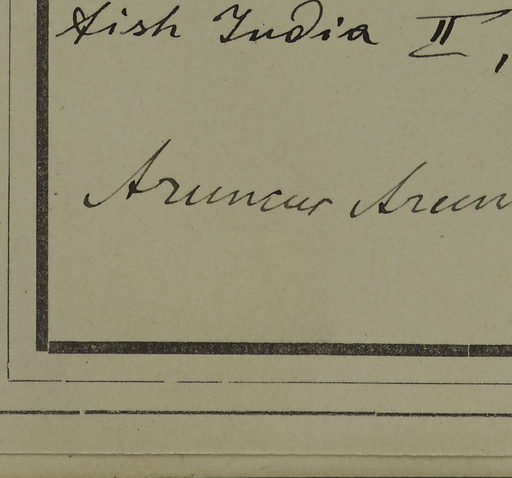 tish India II,
Aruncus Arun